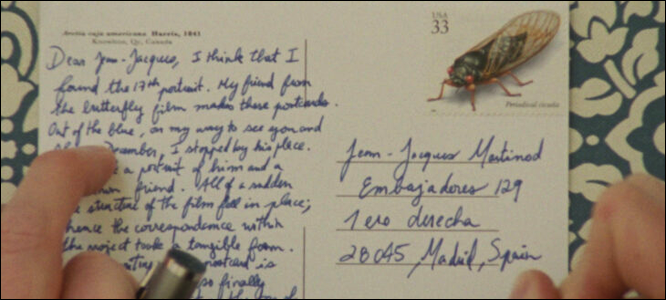 Arctia caja americana Harris, 1841
Knowlton, Qc, Canada
Dear Jean-Jacques, I think that I
found the 17th portrait. My friend from
the butterfly film makes these postcards.
Out of the blue, on my way to see you and
December, I stopped by his place.
a portrait of him and a
friend. All of a sudden
structure of the film fell in place;
hence the correspondence within
the project took a tangible form.
postcard is
so finally
USA
33
Periodical cicada
Jean-Jacques Martinod
Embajadores 129
1ero derecha
28045, Madrid, Spain